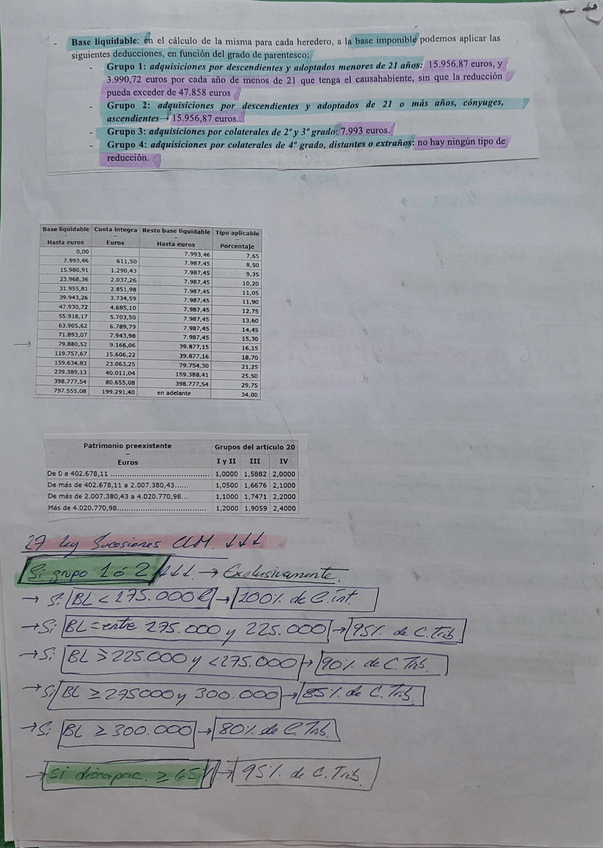 - Base liquidable: en el cálculo de la misma para cada heredero, a la base imponible podemos aplicar las
siguientes deducciones, en función del grado de parentesco:
- Grupo 1: adquisiciones por descendientes y adoptados menores de 21 años: 15.956,87 euros, y
3.990,72 euros por cada año de menos de 21 que tenga el causahabiente, sin que la reducción
pueda exceder de 47.858 euros
- Grupo 2: adquisiciones por descendientes y adoptados de 21 o más años, cónyuges,
ascendientes→ 15.956,87 euros.
- Grupo 3: adquisiciones por colaterales de 2º y 3º grado: 7.993 euros.
- Grupo 4: adquisiciones por colaterales de 4º grado, distantes o extraños: no hay ningún tipo de
reducción.
Base liquidable Cuota íntegra Resto base liquidable Tipo aplicable
– – – –
Hasta euros Euros Hasta euros Porcentaje
0,00 7.993,46 7,65
7.993,46 611,50 7.987,45 8,50
15.980,91 1.290,43 7.987,45 9,35
23.968,36 2.037,26 7.987,45 10,20
31.955,81 2.851,98 7.987,45 11,05
39.943,26 3.734,59 7.987,45 11,90
47.930,72 4.685,10 7.987,45 12,75
55.918,17 5.703,50 7.987,45 13,60
63.905,62 6.789,79 7.987,45 14,45
71.893,07 7.943,98 7.987,45 15,30
→ 79.880,52 9.166,06 39.877,15 16,15
119.757,67 15.606,22 39.877,16 18,70
159.634,83 23.063,25 79.754,30 21,25
239.389,13 40.011,04 159.388,41 25,50
398.777,54 80.655,08 398.777,54 29,75
797.555,08 199.291,40 en adelante 34,00
Patrimonio preexistente Grupos del artículo 20
–
Euros I y II III IV
De 0 a 402.678,11 .................................... 1,0000 1,5882 2,0000
De más de 402.678,11 a 2.007.380,43...... 1,0500 1,6676 2,1000
De más de 2.007.380,43 a 4.020.770,98... 1,1000 1,7471 2,2000
Más de 4.020.770,98................................ 1,2000 1,9059 2,4000
27 ley Sucesiones CLM. ↓↓↓
Si grupo 1 ó 2 ↓↓↓ → Exclusivamente.
→ Si BL < 175.000€ → 100% de C. Int
→ Si BL = entre 175.000 y 225.000 → 95% de C. Trib
→ Si BL ≥ 225.000 y < 275.000 → 90% de C. Trib.
→ Si BL ≥ 275000 y 300.000 → 85% de C. Trib.
→ Si BL ≥ 300.000 → 80% de C. Trib.
→ Si discapac. ≥ 65% → 95% de C. Trib.